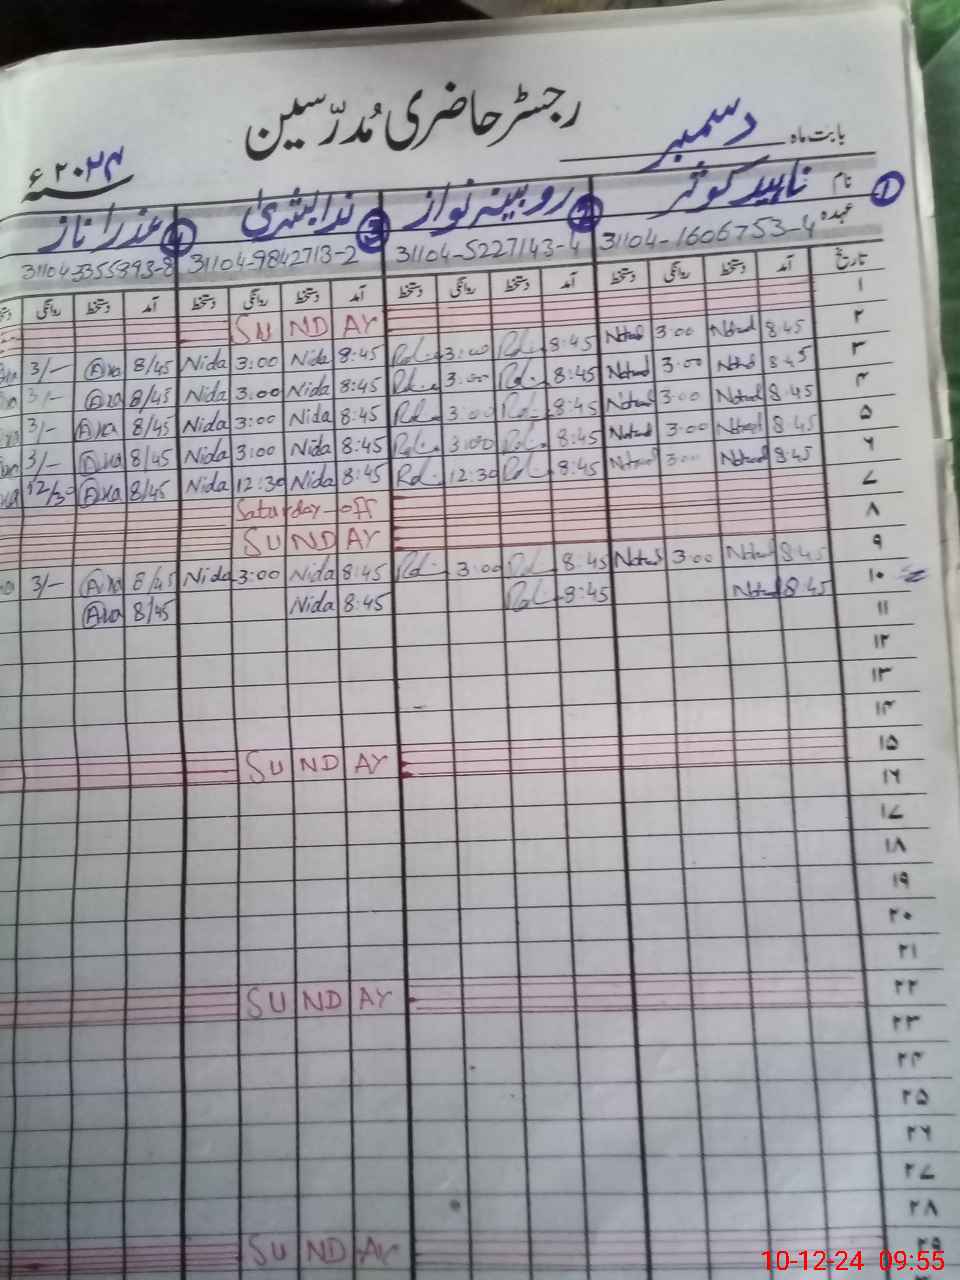 رجسٹر حاضری مُدرّسین
بابت ماہ دسمبر
سنہ ۲۰۲۴ ء
نام ① ناہید کوثر ② روبینہ نواز ③ ندا بشریٰ ④ عذرا ناز
عہدہ 31104-1606753-4 31104-5227143-4 31104-9842713-2 31104-3355393-8
تاریخ آمد دستخط روانگی دستخط آمد دستخط روانگی دستخط آمد دستخط روانگی دستخط آمد دستخط روانگی
۱ SUNDAY
۲ 8:45 3:00 8:45 3:00 8:45 Nida 3:00 Nida 8/45 3/-
۳ 8:45 3:00 8:45 3:00 8:45 Nida 3:00 Nida 8/45 3/-
۴ 8:45 3:00 8:45 3:00 8:45 Nida 3:00 Nida 8/45 3/-
۵ 8:45 3:00 8:45 3:00 8:45 Nida 3:00 Nida 8/45 3/-
۶ 8:45 3:00 8:45 12:30 8:45 Nida 12:30 Nida 8/45 12/30
۷ Saturday-off
۸ SUNDAY
۹ 8:45 3:00 8:45 3:00 8:45 Nida 3:00 Nida 8/45 3/-
۱۰ 8:45 8:45 8:45 Nida 8/45
۱۱
۱۲
۱۳
۱۴
۱۵ SUNDAY
۱۶
۱۷
۱۸
۱۹
۲۰
۲۱
۲۲ SUNDAY
۲۳
۲۴
۲۵
۲۶
۲۷
۲۸
۲۹ SUNDAY
10-12-24 09:55